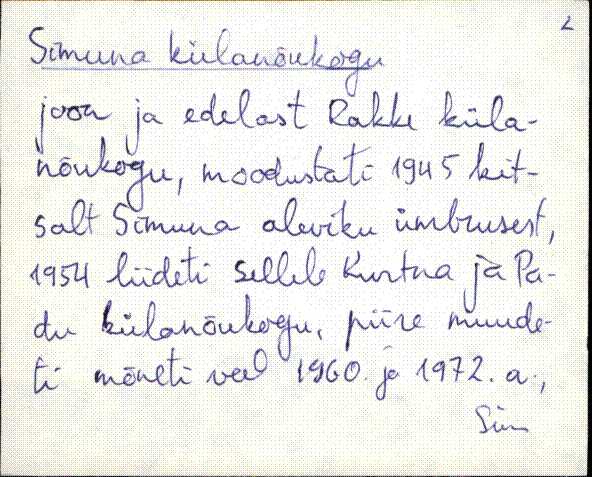 2
Simuna külanõukogu
joon ja edelast Rakke küla-
nõukogu, moodustati 1945 kit-
salt Simuna aleviku ümbrusest,
1954 liideti sellele Kurtna ja Pa-
du külanõukogu, piire muude-
ti mõneti veel 1960. ja 1972. a.,
Sim